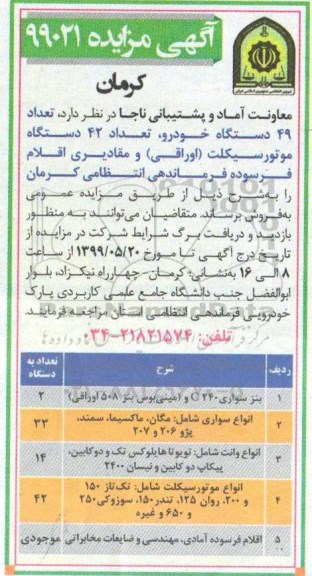 آگهی مزایده ۹۹۰۲۱
کرمان
معاونت آماد و پشتیبانی ناجا در نظر دارد، تعداد
۴۹ دستگاه خودرو، تعداد ۴۲ دستگاه
موتورسیکلت (اوراقی) و مقادیری اقلام
فرسوده فرماندهی انتظامی کرمان
را به‌شرح ذیل از طریق مزایده عمومی
به‌فروش برساند. متقاضیان می‌توانند به منظور
بازدید و دریافت برگ شرایط شرکت در مزایده از
تاریخ درج آگهی تا مورخ ۱۳۹۹/۰۵/۲۰ از ساعت
۸ الی ۱۶ به‌نشانی: کرمان- چهارراه نیک‌زاد، بلوار
ابوالفضل جنب دانشگاه جامع علمی کاربردی پارک
خودرویی فرماندهی انتظامی استان مراجعه فرمایند.
تلفن: ۲۱۸۲۱۵۷۴-۰۳۴
ردیف شرح تعداد به دستگاه
۱ بنز سواری C ۲۴۰ و (مینی‌بوس بنز ۵۰۸ اوراقی) ۲
۲ انواع سواری شامل: مگان، ماکسیما، سمند،
پژو ۲۰۶ و ۲۰۷ ۳۳
۳ انواع وانت شامل: تویوتا هایلوکس تک و دوکابین،
پیکاپ دو کابین و نیسان ۲۴۰۰ ۱۴
۴ انواع موتورسیکلت شامل: تک‌تاز ۱۵۰
و ۲۰۰، روان ۱۲۵، تندر ۱۵۰، سوزوکی ۲۵۰
و ۶۵۰ و غیره ۴۲
۵ اقلام فرسوده آمادی، مهندسی و ضایعات مخابراتی موجودی